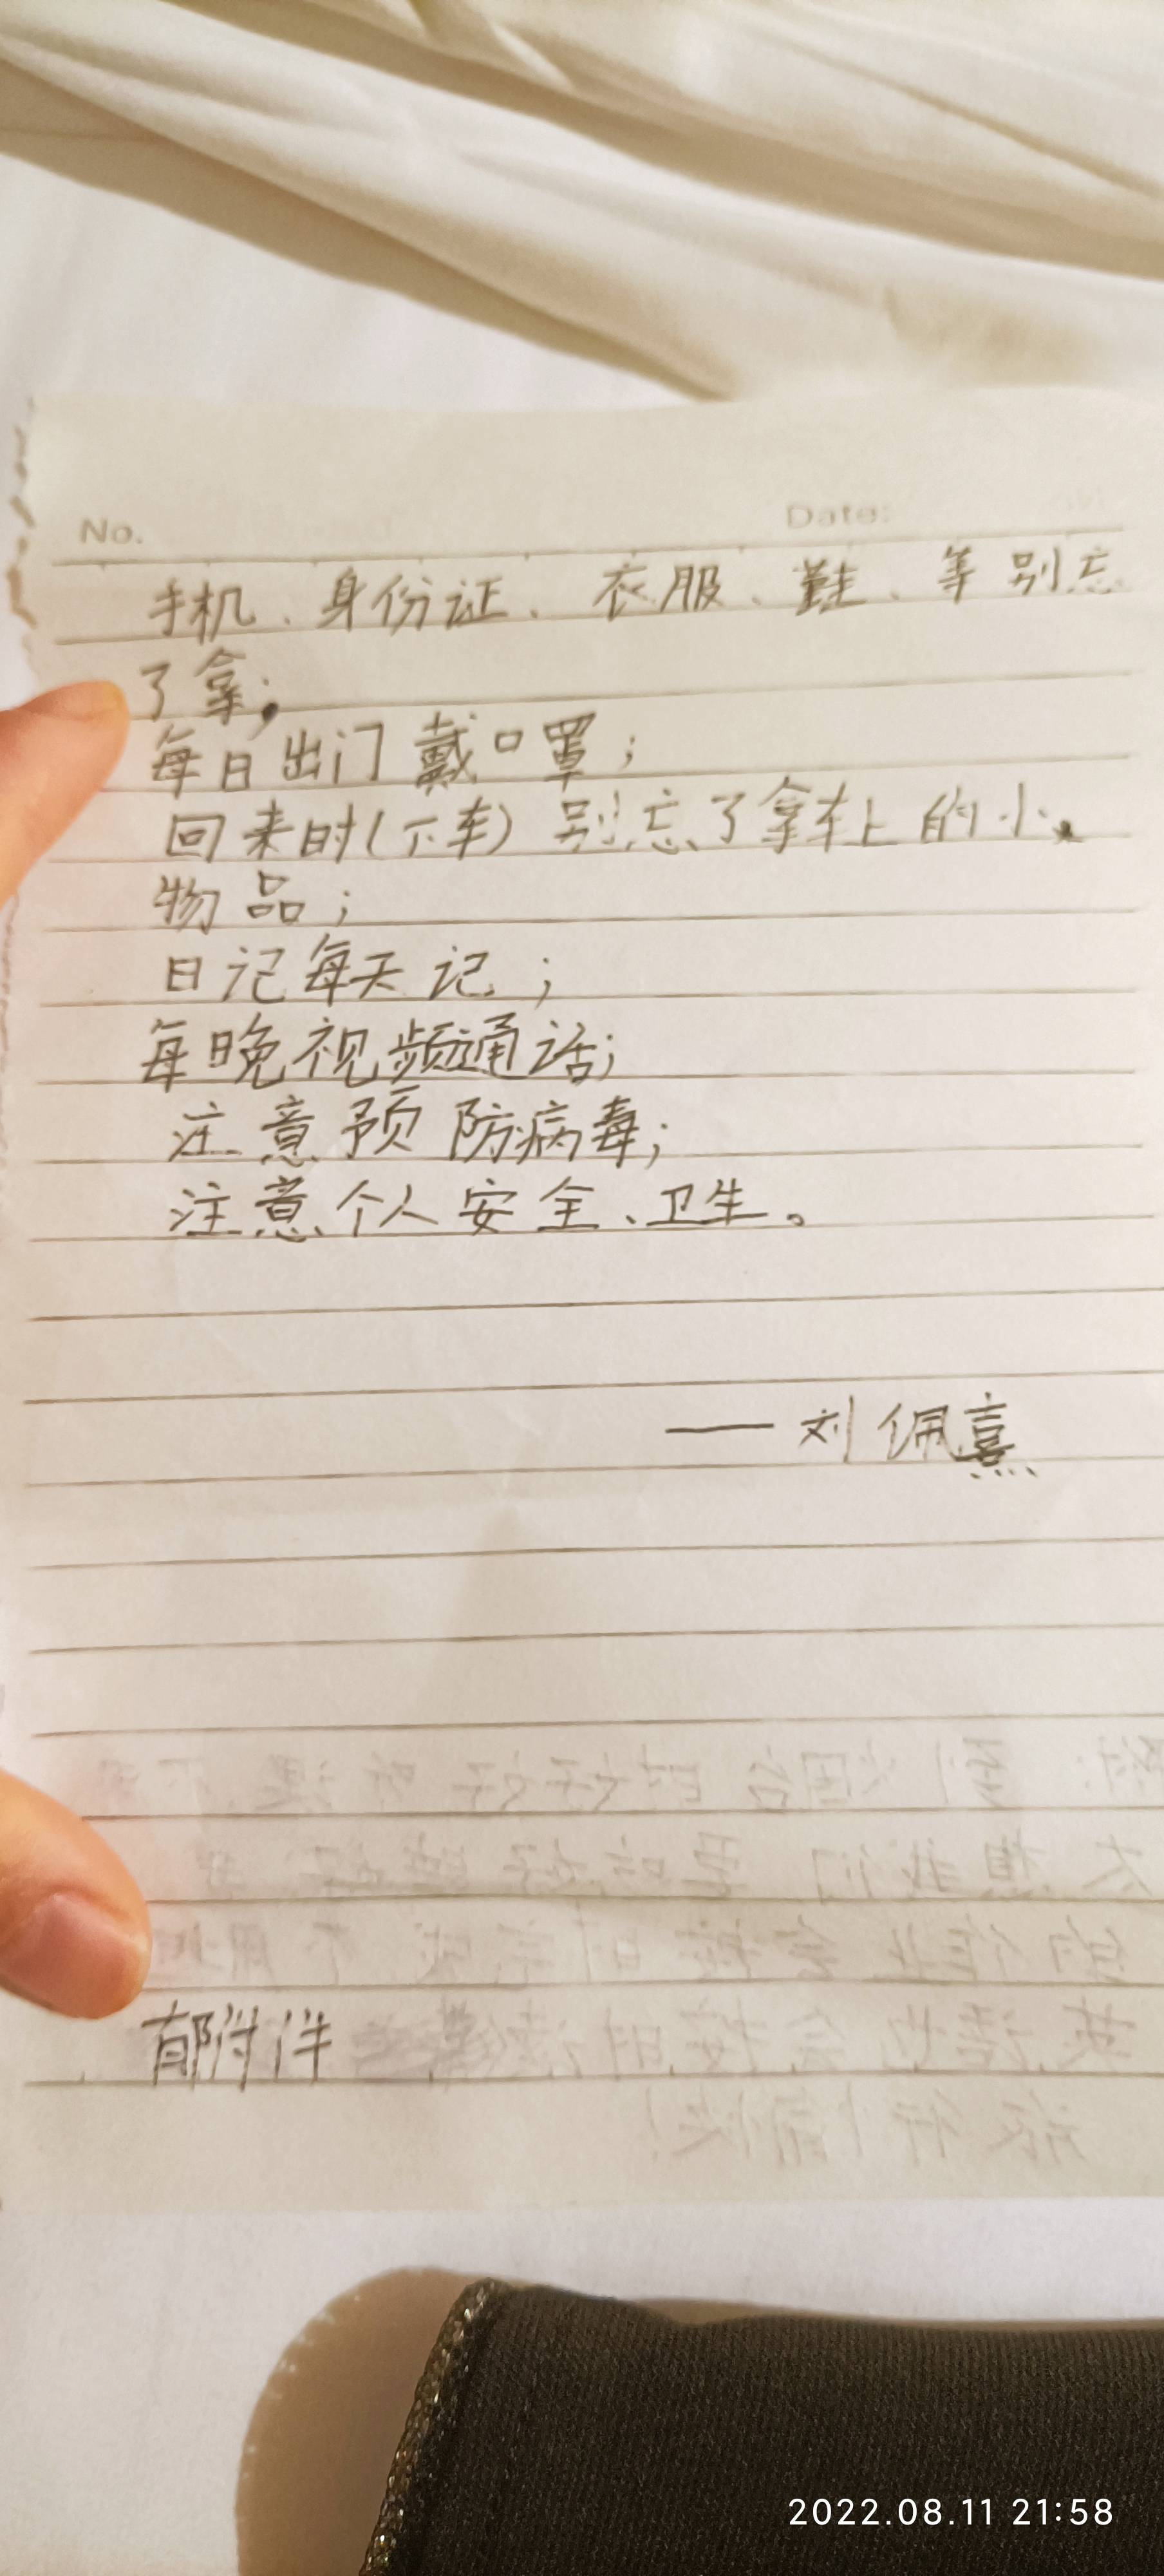 No.
Date:
手机、身份证、衣服、鞋、等别忘
了拿;
每日出门戴口罩;
回来时(下车)别忘了拿车上的小
物品;
日记每天记;
每晚视频通话;
注意预防病毒;
注意个人安全、卫生。
——刘佩熹
附件
2022.08.11 21:58